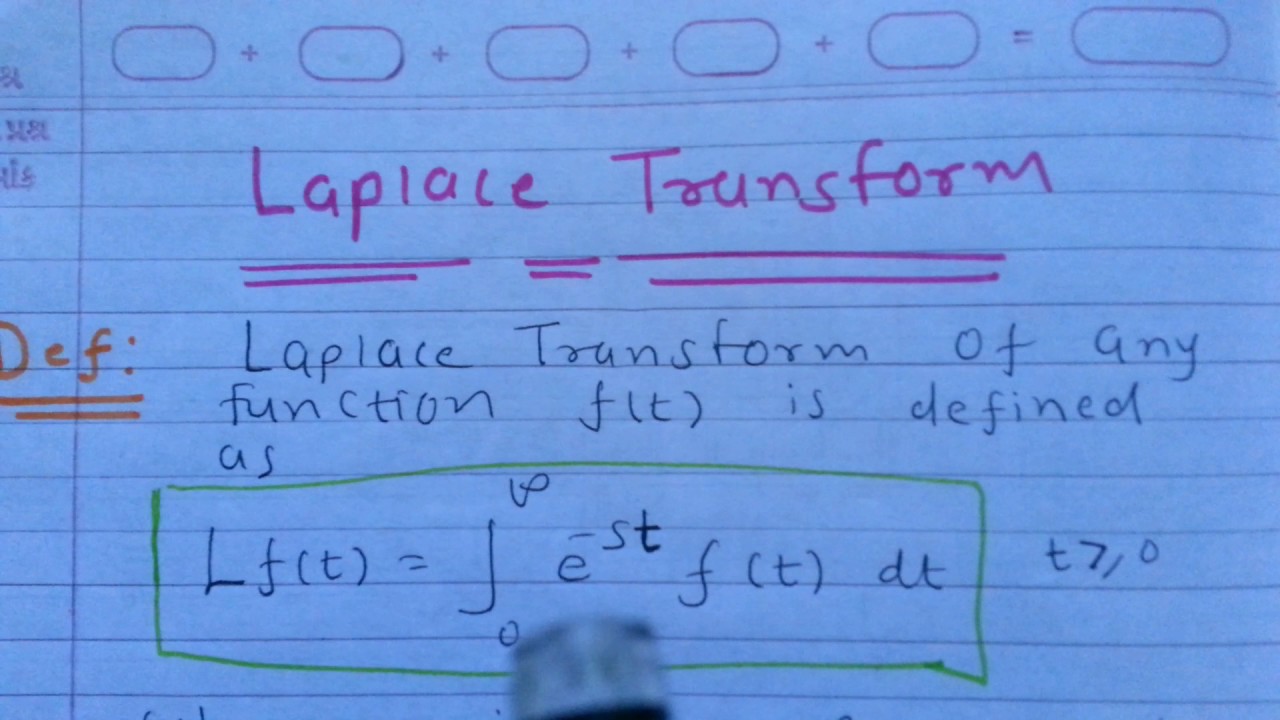 + + + + =
Laplace Transform
Def: Laplace Transform of any
function f(t) is defined
as
L f(t) = ∫₀^∞ e^{-st} f(t) dt t ≥ 0